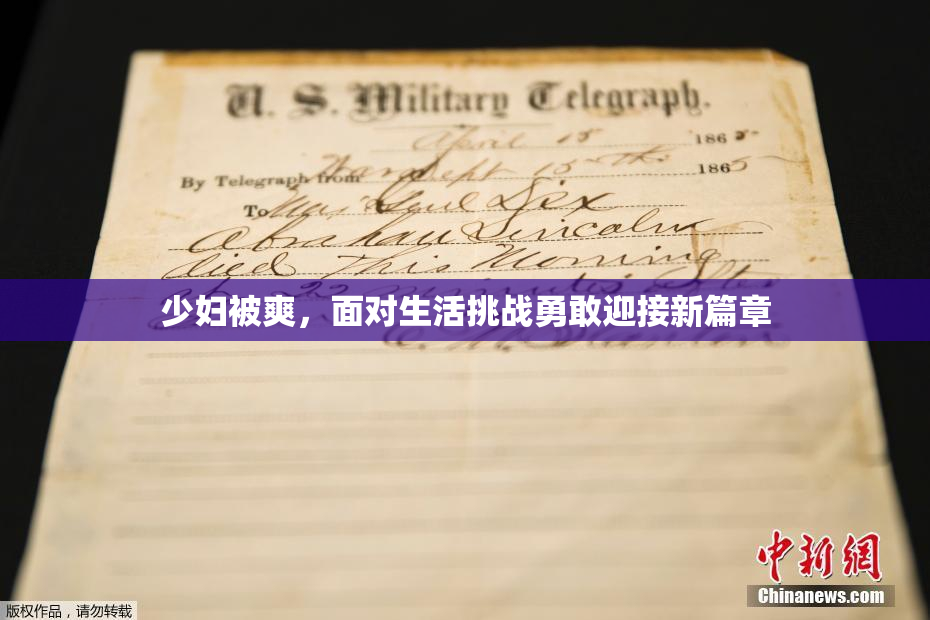 U. S. Military Telegraph.
April 15 1865
By Telegraph from War Dept 15th 1865
To Maj Genl Dix
Abraham Lincoln
died This Morning
at 22 minutes after
少妇被爽，面对生活挑战勇敢迎接新篇章
E. M. Stanton
中新網
Chinanews.com
版权作品，请勿转载